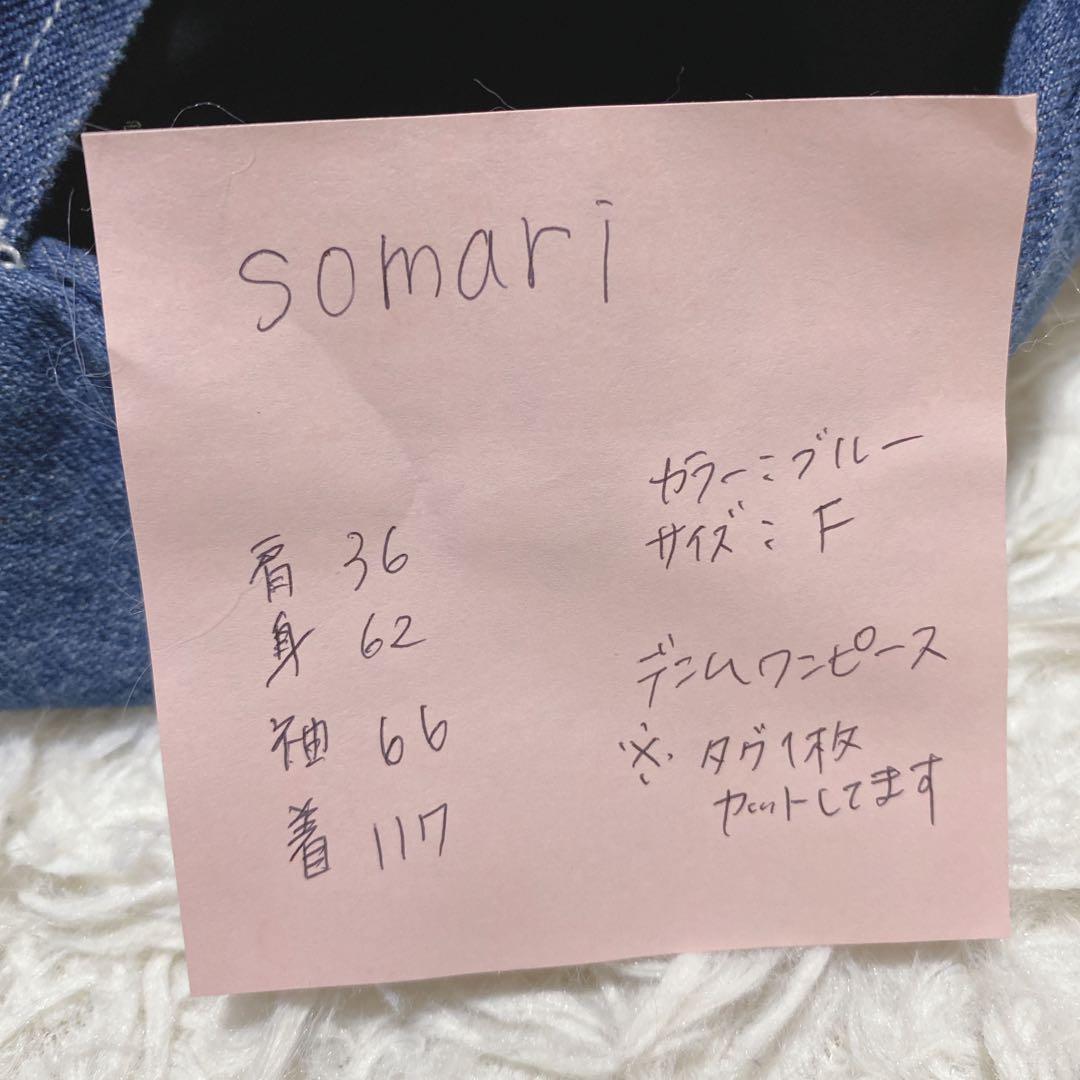 somari
カラー:ブルー
サイズ:F
肩 36
身 62
袖 66
着 117
デニムワンピース
※タグ1枚
カットしてます